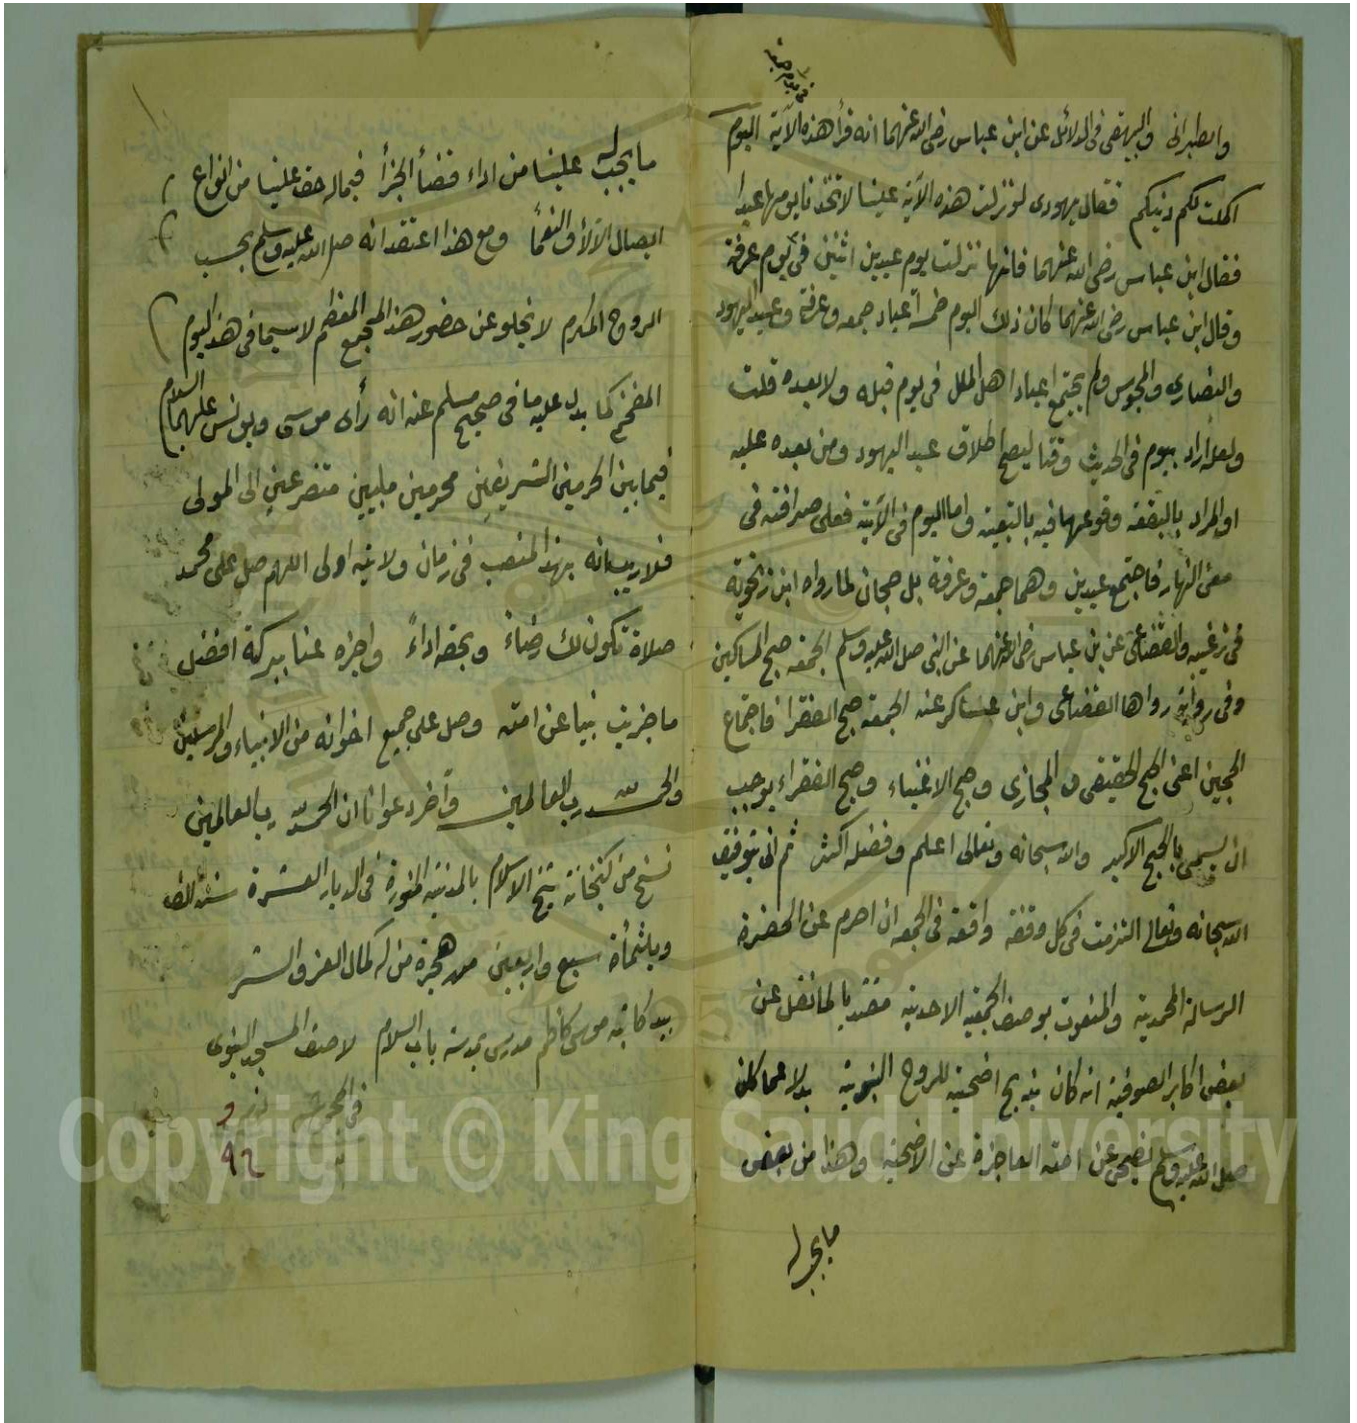 في يوم جمعة
والطبراني والبيهقي في الدلائل عن ابن عباس رضي الله عنهما انه قرأ هذه الآية اليوم
اكملت لكم دينكم فقال يهودي لو نزلت هذه الآية علينا لاتخذنا يومها عيدا
فقال ابن عباس رضي الله عنهما فانها نزلت يوم عيدين اثنين في يوم عرفة
وقال ابن عباس رضي الله عنهما كان ذلك اليوم خمسة اعياد جمعه وعرفة وعيد اليهود
والنصارى والمجوس ولم يجتمع اعياد اهل الملل في يوم قبله ولا بعده قلت
ولعله اراد بيوم في الحديث وقتا ليصح اطلاق عيد اليهود ومن بعده عليه
او المراد بالبقعة وقوعها فيه بالتبعية واما اليوم في الآية فعلى صرافته في
معنى النهار فاجتمع عيدين وهما جمعة وعرفة بل حجان لما رواه ابن زنجويه
في ترغيبه والقضاعي عن بن عباس رضي الله عنهما عن النبي صلى الله عليه وسلم الجمعة حج المساكين
وفي رواية رواها القضاعي وابن عساكر عنه الجمعة حج الفقرا فاجتماع
الحجين اعني الحج الحقيقي والمجازي وحج الاغنياء وحج الفقراء يوجب
ان يسمى بالحج الاكبر والله سبحانه وتعالى اعلم وفضله اكثر ثم اني بتوفيق
الله سبحانه وتعالى التزمت في كل وقفة واقعة في الجمعه ان احرم عن الحضرة
الرسالة المحمدية والمنعوت بوصف الجمعية الاحدية مقتديا لما نقل عن
بعض اكابر الصوفية انه كان يذبح اضحية للروح النبوية بدلا عما كان
صلى الله عليه وسلم يضحي عن امته العاجزة عن الاضحية وهذا من بعض
ما يجب له
ما يجب له علينا من اداء قضأ الجزأ فيما له حق علينا من انواع
ايصال الآلآ والنعمأ ومع هذا اعتقد انه صلى الله عليه وسلم بحسب
الروح المكرم لا يخلو عن حضور هذا المجمع المعظم لا سيما في هذا اليوم
المفخم كما يدل عليه ما في صحيح مسلم عنه انه رأى موسى ويونس عليهما السلام
فيما بين الحرمين الشريفين محرمين ملبيين متضرعين الى المولى
فلا ريب انه بهذا المنصب في زمان ولايته اولى اللهم صل على محمد
صلاة تكون لك رضاءً وبحقه اداءً واجزه عنا ببركة افضل
ما جزيت نبيا عن امته وصل على جميع اخوانه من الانبياء والمرسلين
والحمد لله رب العالمين وآخر دعوانا ان الحمد لله رب العالمين
نسخ من كتبخانة شيخ الاسلام بالمدينة المنورة في الديار العشرة سنة الف
وثلثمأة سبع واربعين من هجرة من له كمال العز والشرف
بيد كاتبه موسى كاظم مدرس بمدرسة باب السلام لاصق المسجد النبوي
في المحرم
Copyright © King Saud University